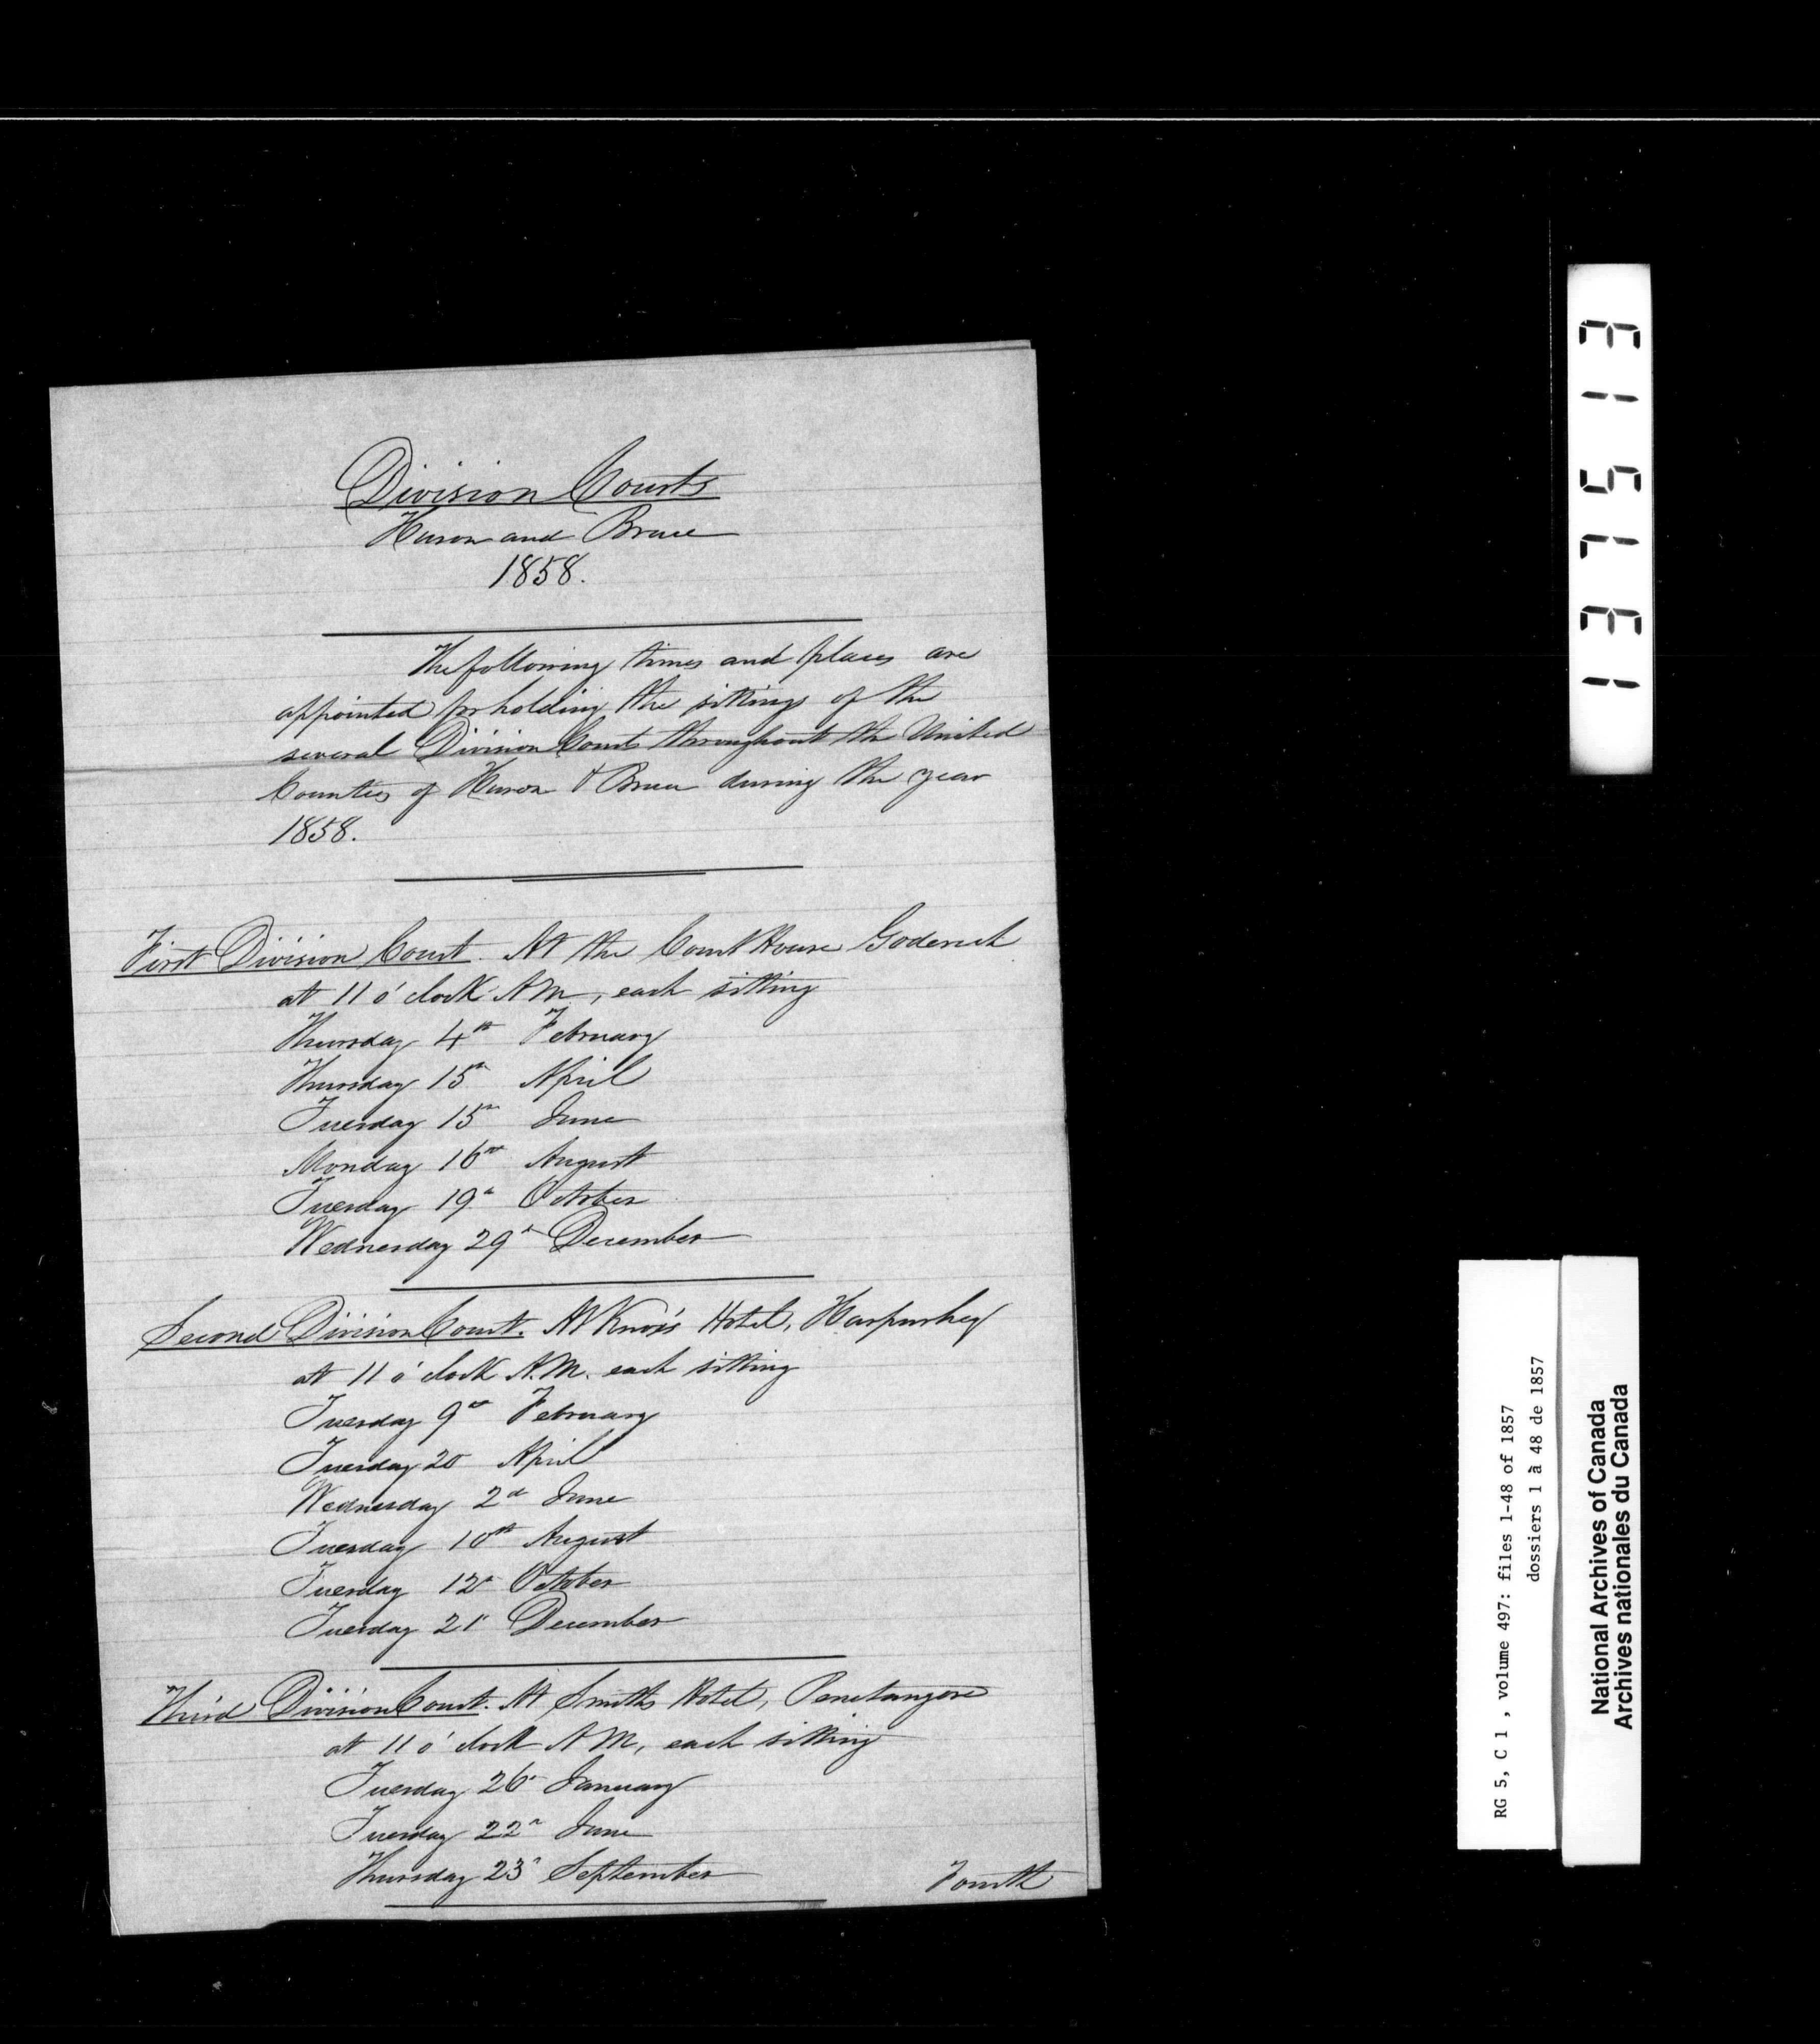 Division Courts
Huron and Bruce
1858.
The following times and places are
appointed for holding the sittings of the
several Division Courts throughout the United
Counties of Huron & Bruce during the year
1858.
First Division Court. At the Court House Goderich
at 11 o'clock A M, each sitting
Thursday 4th February
Thursday 15th April
Tuesday 15th June
Monday 16th August
Tuesday 19th October
Wednesday 29th December
Second Division Court. At Knox's Hotel, Harpurhey
at 11 o'clock A.M. each sitting
Tuesday 9th February
Tuesday 20 April
Wednesday 2d June
Tuesday 10th August
Tuesday 12th October
Tuesday 21st December
Third Division Court. At Smiths Hotel, Penetangore
at 11 o'clock A M, each sitting
Tuesday 26th January
Tuesday 22d June
Thursday 23d September
Fourth
137513
RG 5, C 1 , volume 497: files 1-48 of 1857
dossiers 1 à 48 de 1857
National Archives of Canada
Archives nationales du Canada